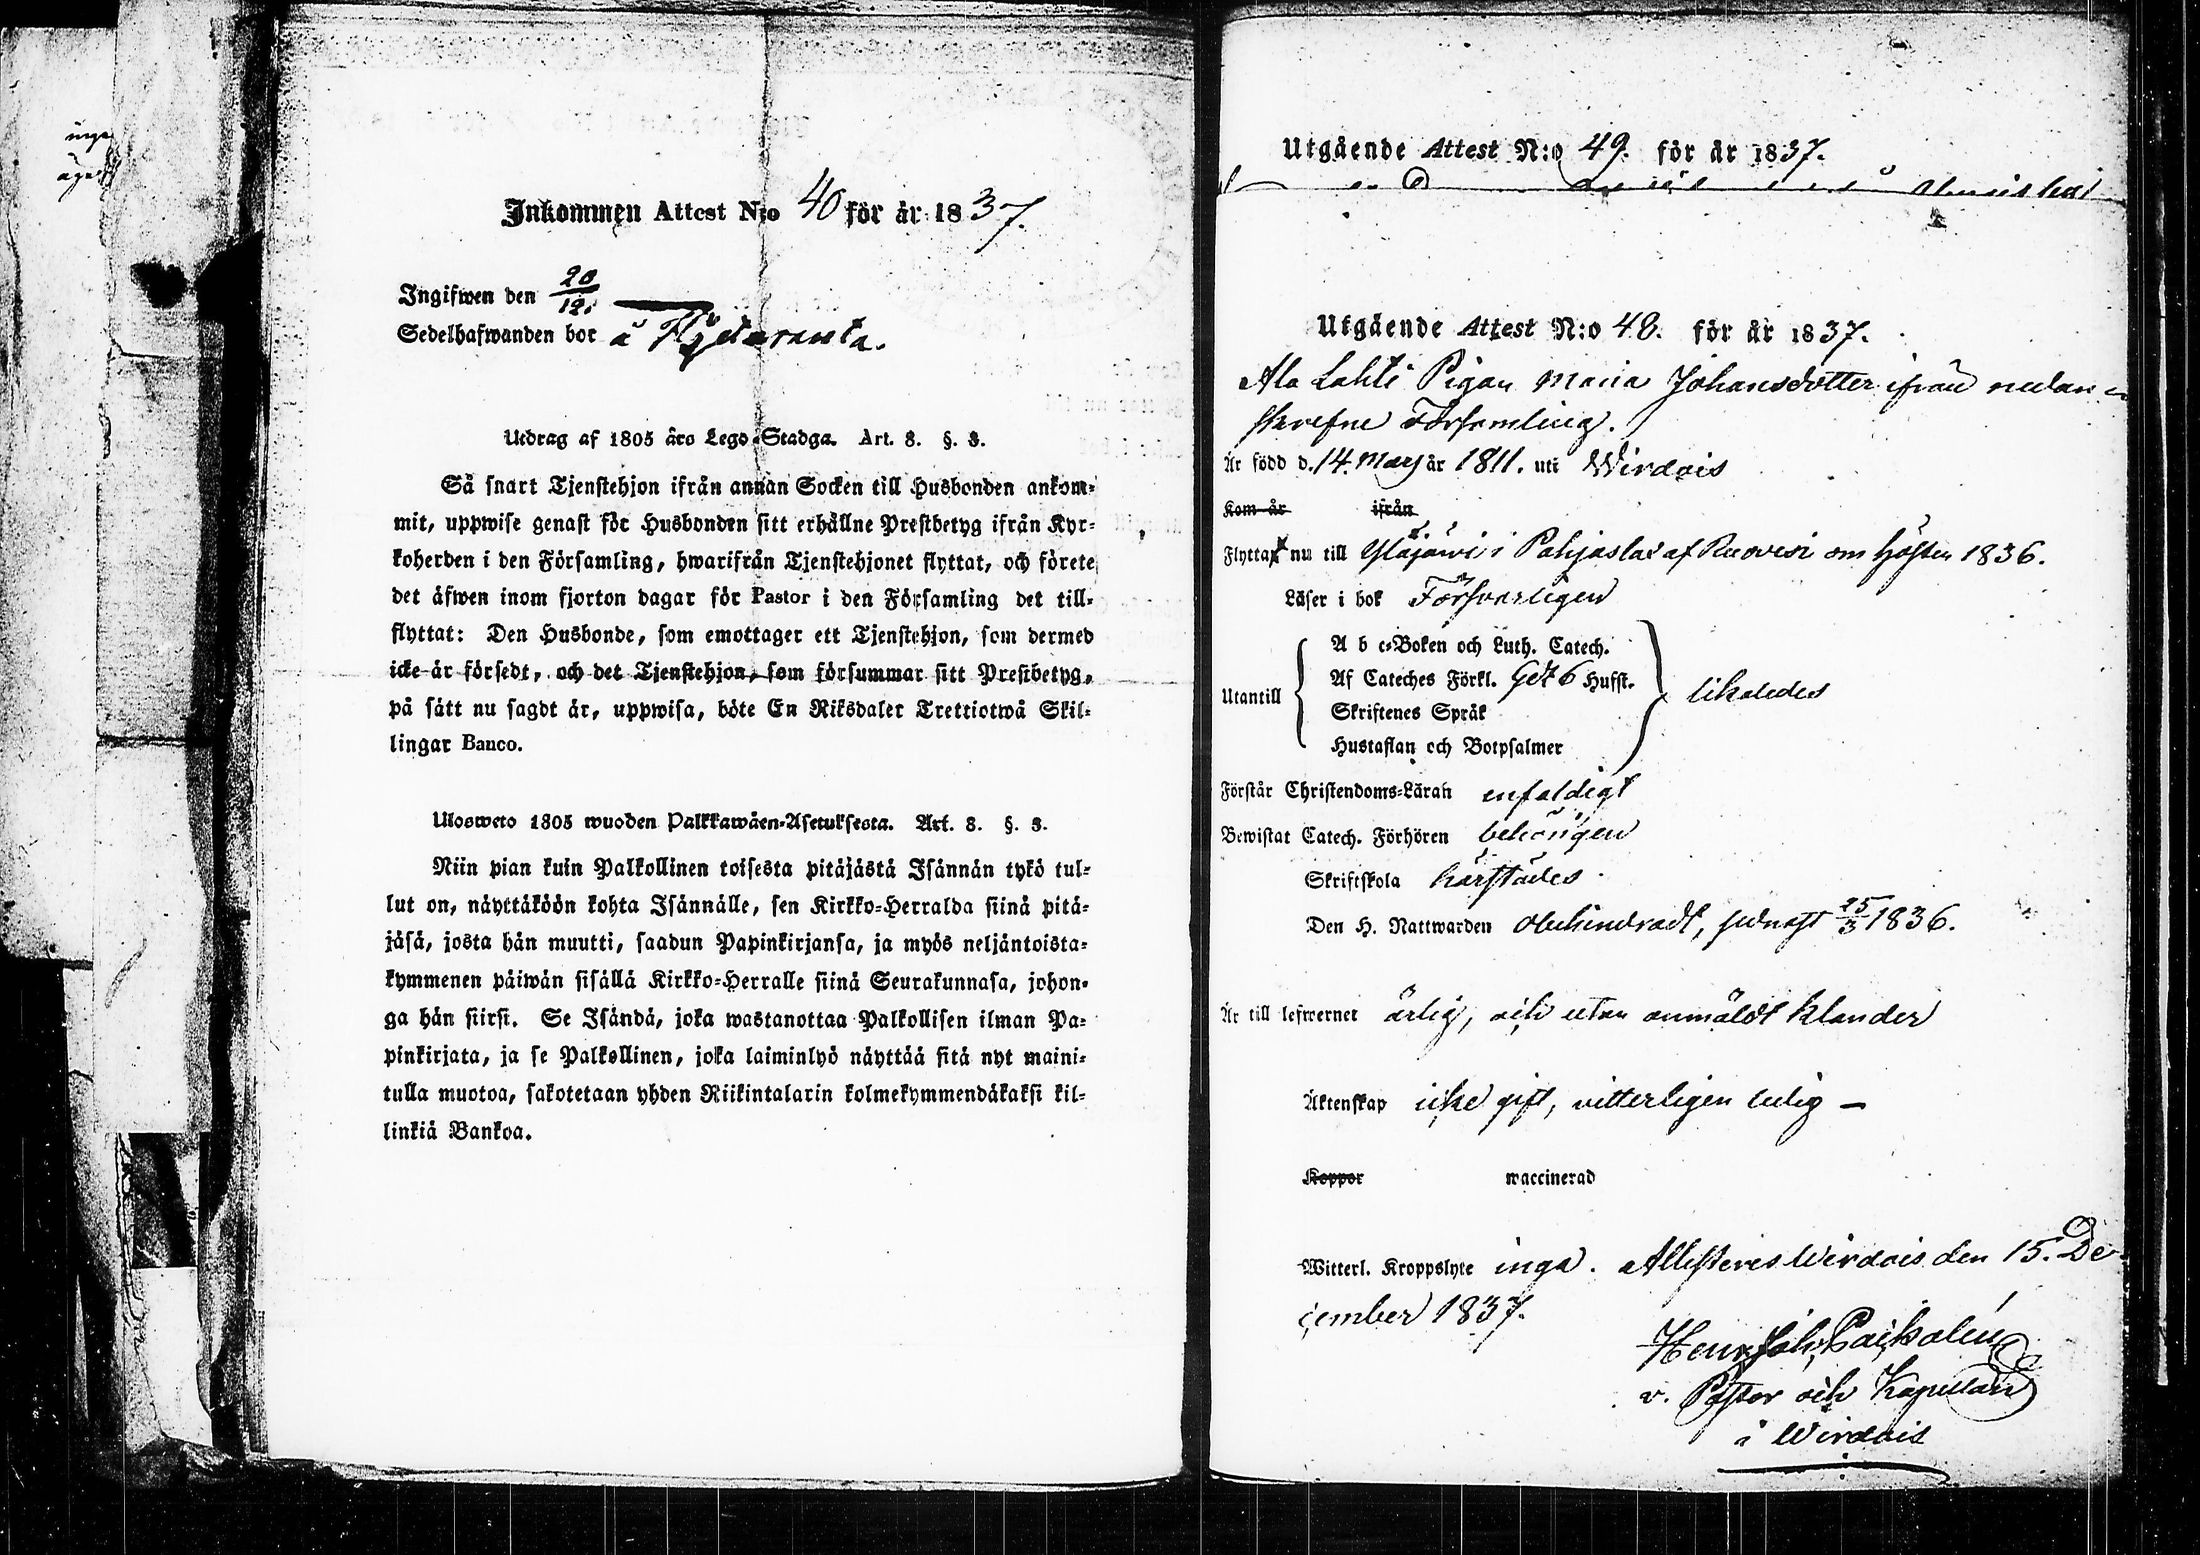 inga
äger
Inkommen Attest N:o 40 för år 1837.
Ingifwen den 20/12.
Sedelhafwanden bor å
Utdrag af 1805 års Lego-Stadga. Art. 8. §. 3.
Så snart Tjenstehjon ifrån annan Socken till Husbonden ankom-
mit, uppwise genast för Husbonden sitt erhållne Prestbetyg ifrån Kyr-
koherden i den Församling, hwarifrån Tjenstehjonet flyttat, och förete
det äfwen inom fjorton dagar för Pastor i den Församling det till-
flyttat: Den Husbonde, som emottager ett Tjenstehjon, som dermed
icke är försedt, och det Tjenstehjon, som försummar sitt Prestbetyg,
på sätt nu sagdt är, uppwisa, böte En Riksdaler Trettiotwå Skil-
lingar Banco.
Ulosweto 1805 wuoden Palkkawäen-Asetuksesta. Art. 8. §. 3.
Niin pian kuin Palkollinen toisesta pitäjästä Isännän tykö tul-
lut on, näyttäköön kohta Isännälle, sen Kirkko-Herralda siinä pitä-
jäsä, josta hän muutti, saadun Papinkirjansa, ja myös neljäntoista-
kymmenen päiwän sisällä Kirkko-Herralle siinä Seurakunnasa, johon-
ga hän siirsi. Se Isändä, joka wastanottaa Palkollisen ilman Pa-
pinkirjata, ja se Palkollinen, joka laiminlyö näyttää sitä nyt maini-
tulla muotoa, sakotetaan yhden Riikintalarin kolmekymmendäkaksi kil-
linkiä Bankoa.
Utgående Attest N:o 49. för år 1837.
Utgående Attest N:o 48. för år 1837.
Ala Lahti Pigan Maria Johansdotter ifrån nedan
skrefne Församling.
Är född d. 14. Maj år 1811. uti Wirdois
Kom år ifrån
Flyttat nu till i Pohjaslax af Ruovesi om hösten 1836.
Läser i bok Försvarligen
Utantill
A b c-Boken och Luth. Catech.
Af Cateches Förkl. 6 Hufst.
Skriftenes Språk
Hustaflan och Botpsalmer
likaledes
Förstår Christendoms-Läran enfaldigt
Bewistat Catech. Förhören behörigen
Skriftskola härstädes.
Den H. Nattwarden obehindradt, sednast 25/3 1836.
Är till lefwernet ärlig, och utan anmäldt klander
Äktenskap icke gift, vitterligen ledig —
Koppor waccinerad
Witterl. Kroppslyte inga. Attesteres Wirdois den 15. De-
cember 1837.
Henr. Joh.
v. Pastor och Kapellan
i Wirdois